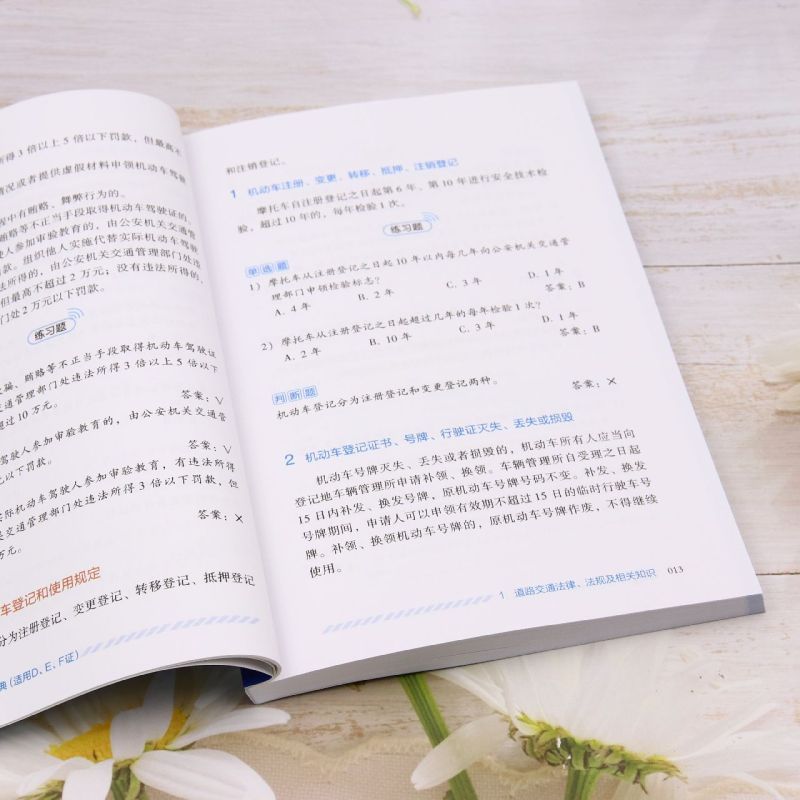 所得3倍以上5倍以下罚款，但最高不
情况或者提供虚假材料申领机动车驾驶
中有贿赂、舞弊行为的。
贿赂等不正当手段取得机动车驾驶证的。
驶人参加审验教育的，由公安机关交通管
款。组织他人实施代替实际机动车驾驶
法所得的，由公安机关交通管理部门处违
但最高不超过2万元；没有违法所得的，
门处2万元以下罚款。
练习题
骗、贿赂等不正当手段取得机动车驾驶证
交通管理部门处违法所得3倍以上5倍以下
超过10万元。
答案：√
驾驶人参加审验教育的，由公安机关交通管
元以下罚款。
答案：√
实际机动车驾驶人参加审验教育，有违法所得
关交通管理部门处违法所得3倍以下罚款，但
万元。
答案：×
车登记和使用规定
分为注册登记、变更登记、转移登记、抵押登记
典（适用D、E、F证）
和注销登记。
1 机动车注册、变更、转移、抵押、注销登记
摩托车自注册登记之日起第6年、第10年进行安全技术检
验，超过10年的，每年检验1次。
练习题
单选题
1）摩托车从注册登记之日起10年以内每几年向公安机关交通管
理部门申领检验标志？
A. 4年 B. 2年 C. 3年 D. 1年
答案：B
2）摩托车从注册登记之日起超过几年的每年检验1次？
A. 2年 B. 10年 C. 3年 D. 1年
答案：B
判断题
机动车登记分为注册登记和变更登记两种。 答案：×
2 机动车登记证书、号牌、行驶证灭失、丢失或损毁
机动车号牌灭失、丢失或者损毁的，机动车所有人应当向
登记地车辆管理所申请补领、换领。车辆管理所自受理之日起
15日内补发、换发号牌，原机动车号牌号码不变。补发、换发
号牌期间，申请人可以申领有效期不超过15日的临时行驶车号
牌。补领、换领机动车号牌的，原机动车号牌作废，不得继续
使用。
1 道路交通法律、法规及相关知识 013